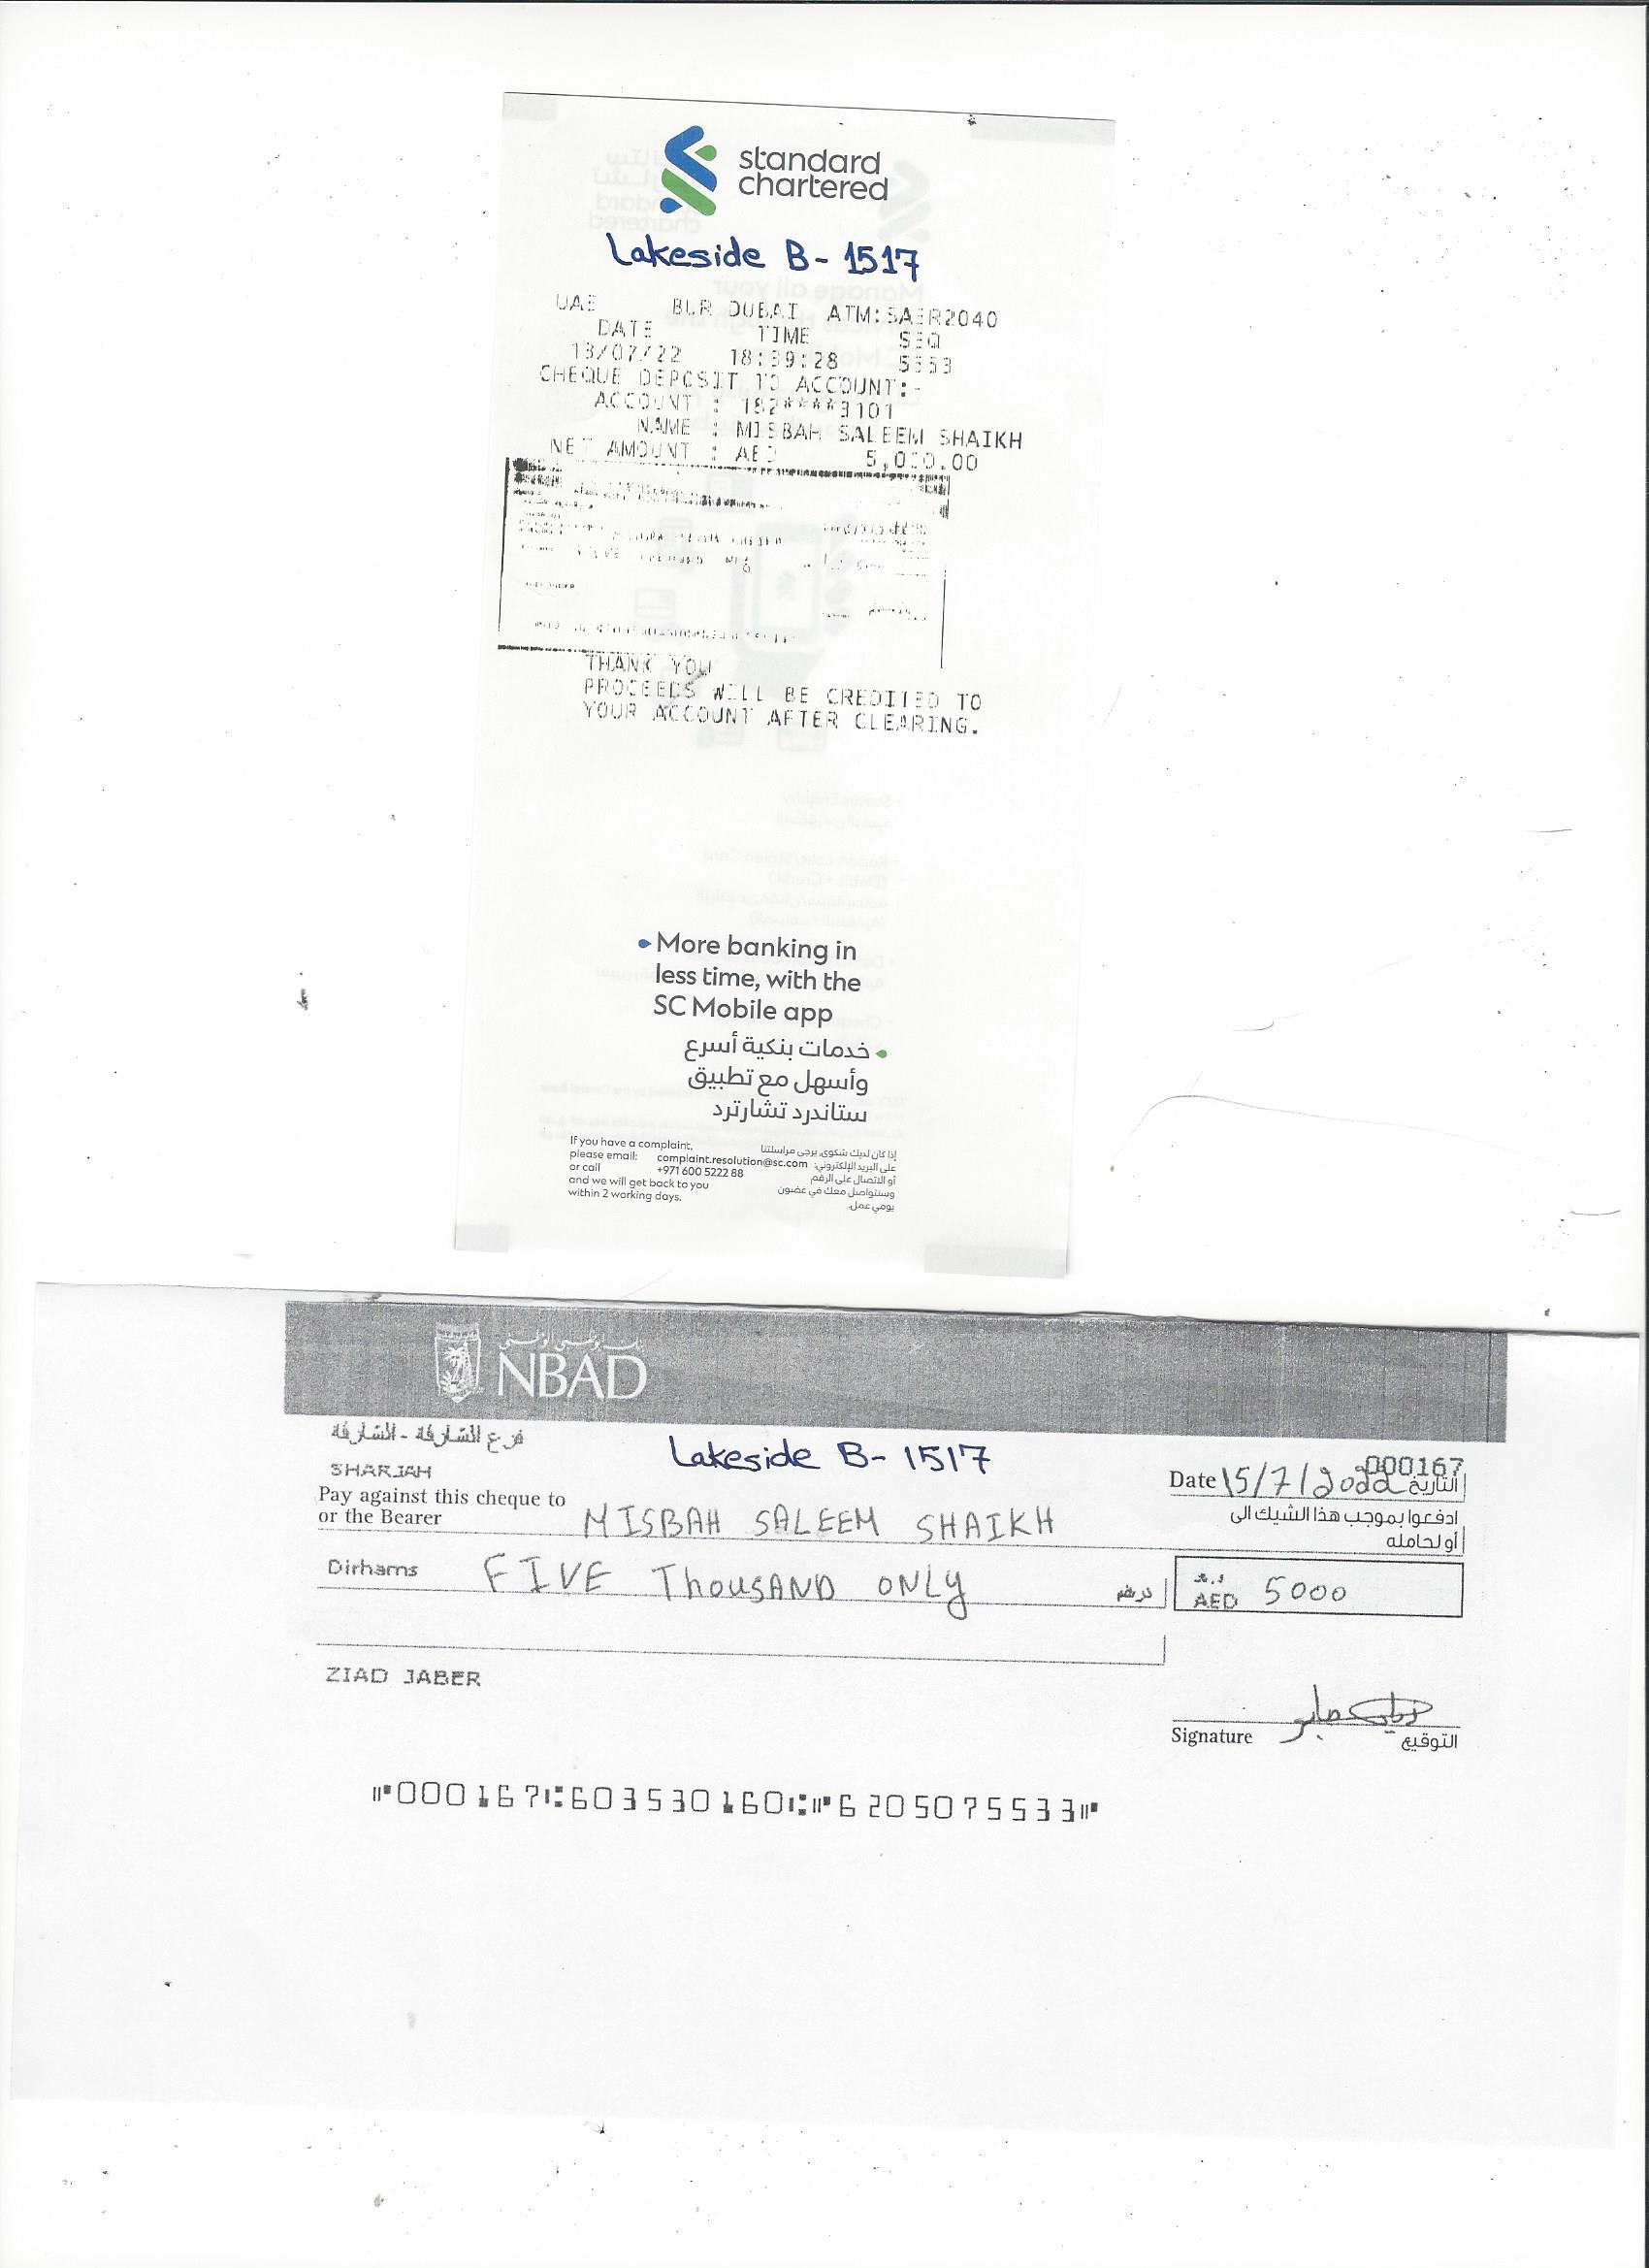 standard
chartered
Lakeside B-1517
UAE BUR DUBAI ATM:SABR2040
DATE TIME SEQ
13/07/22 18:39:28
CHEQUE DEPOSIT TO ACCOUNT:-
ACCOUNT : 182****3101
NAME : MISBAH SALEEM SHAIKH
NET AMOUNT : AED 5,000.00
THANK YOU
PROCEEDS WILL BE CREDITED TO
YOUR ACCOUNT AFTER CLEARING.
More banking in
less time, with the
SC Mobile app
خدمات بنكية أسرع
وأسهل مع تطبيق
ستاندرد تشارترد
If you have a complaint,
please email: complaint.resolution@sc.com
or call +971 600 5222 88
and we will get back to you
within 2 working days.
إذا كان لديك شكوى، يرجى مراسلتنا
على البريد الإلكتروني:
أو الاتصال على الرقم
وسنتواصل معك في غضون
يومي عمل.
NBAD
فرع الشارقة - الشارقة
Lakeside B-1517
000167
SHARJAH
Date 15/7/2022 التاريخ
Pay against this cheque to
or the Bearer MISBAH SALEEM SHAIKH
ادفعوا بموجب هذا الشيك الى
أو لحامله
Dirhams FIVE THOUSAND ONLY درهم
د.إ.
AED 5000
ZIAD JABER
Signature التوقيع
000167 603530160 6205075533